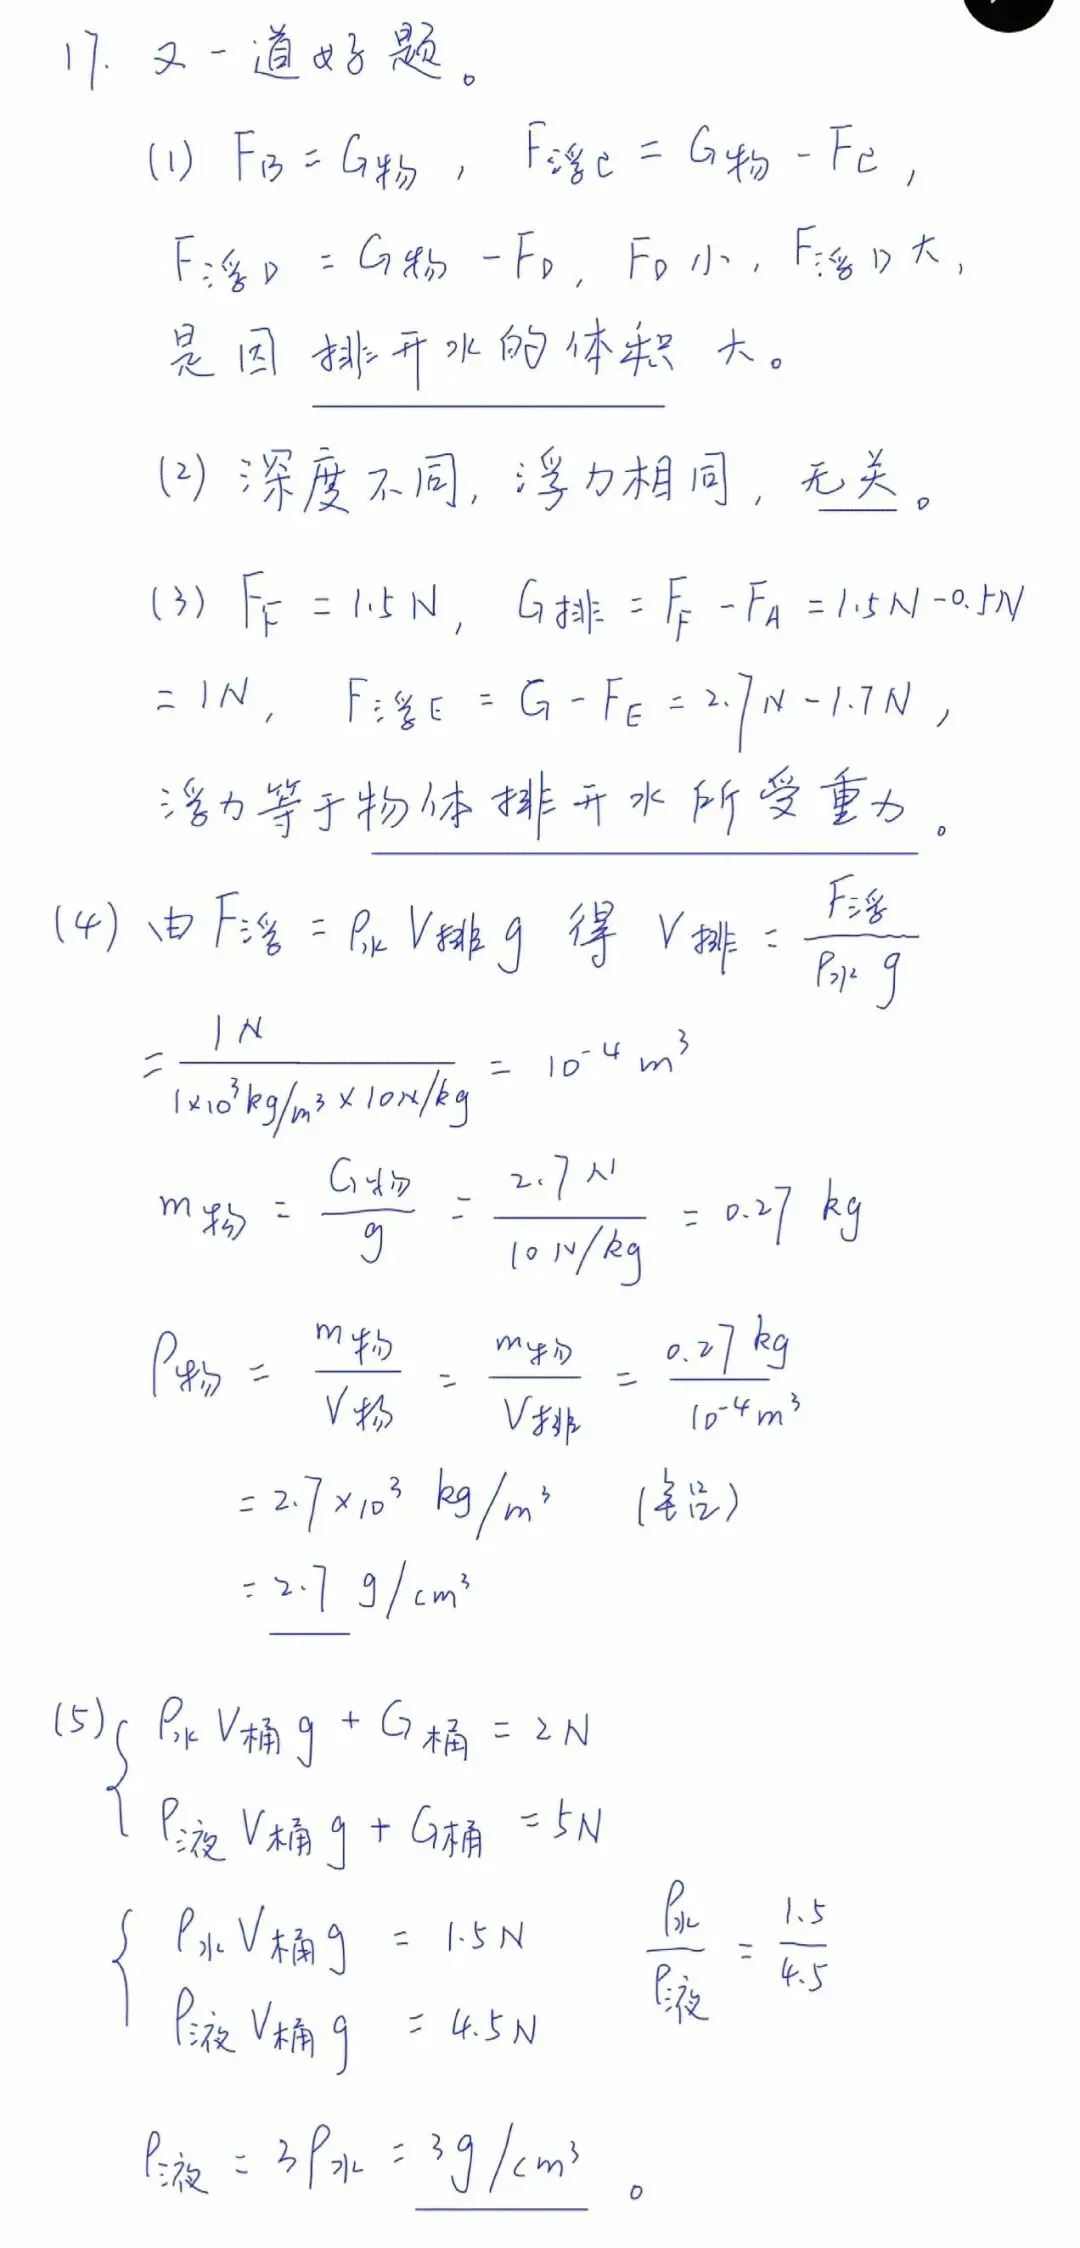 17. 又一道好题。
(1) F_B = G物, F浮C = G物 - F_C,
F浮D = G物 - F_D, F_D小, F浮D大,
是因排开水的体积大。
(2) 深度不同, 浮力相同, 无关。
(3) F_F = 1.5N, G排 = F_F - F_A = 1.5N - 0.5N
= 1N, F浮E = G - F_E = 2.7N - 1.7N,
浮力等于物体排开水所受重力。
(4) 由 F浮 = ρ水 V排 g 得 V排 = F浮/(ρ水 g)
= 1N/(1×10³kg/m³ × 10N/kg) = 10⁻⁴ m³
m物 = G物/g = 2.7N/(10N/kg) = 0.27 kg
ρ物 = m物/V物 = m物/V排 = 0.27kg/(10⁻⁴m³)
= 2.7×10³ kg/m³ (铝)
= 2.7 g/cm³
(5) { ρ水 V桶 g + G桶 = 2N
ρ液 V桶 g + G桶 = 5N
{ ρ水 V桶 g = 1.5N ρ水/ρ液 = 1.5/4.5
ρ液 V桶 g = 4.5N
ρ液 = 3ρ水 = 3g/cm³。